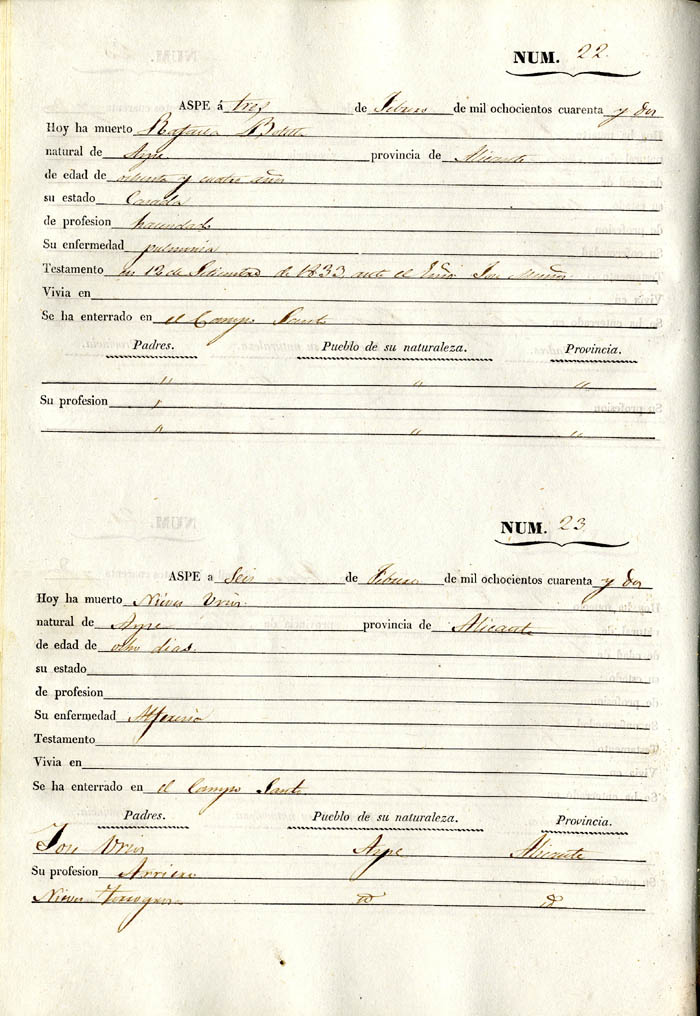 NUM. 22.
ASPE á tres de Febrero de mil ochocientos cuarenta y dos
Hoy ha muerto Rafaela Botella
natural de Aspe provincia de Alicante
de edad de y cuatro años
su estado Casada
de profesion
Su enfermedad pulmonia
Testamento en 12 de Setiembre de 1833, ante el Esno Jose Muñoz
Vivia en
Se ha enterrado en el Campo Santo
Padres. Pueblo de su naturaleza. Provincia.
" " "
Su profesion "
" " "
NUM. 23
ASPE a Seis de Febrero de mil ochocientos cuarenta y dos
Hoy ha muerto Nieves Urios
natural de Aspe provincia de Alicante
de edad de ocho dias
su estado
de profesion
Su enfermedad Alferecia
Testamento
Vivia en
Se ha enterrado en el Campo Santo
Padres. Pueblo de su naturaleza. Provincia.
Jose Urios Aspe Alicante
Su profesion Arriero
Nieves